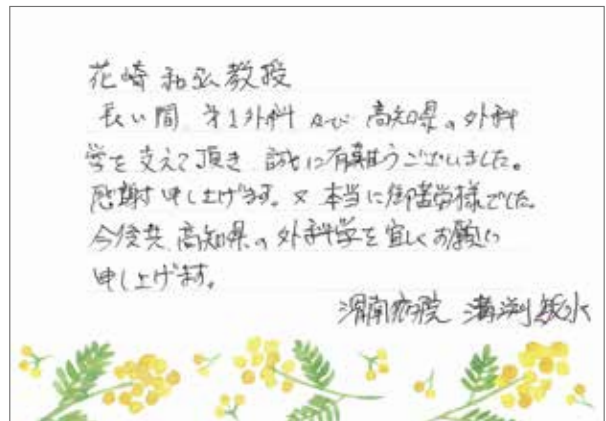 花崎和弘教授
長い間 第1外科 及び 高知県の外科
学を支えて頂き 誠に有難うございました。
感謝申し上げます。又 本当に御苦労様でした。
今後共 高知県の外科学を宜しくお願い
申し上げます。
渭南病院 溝渕敏水